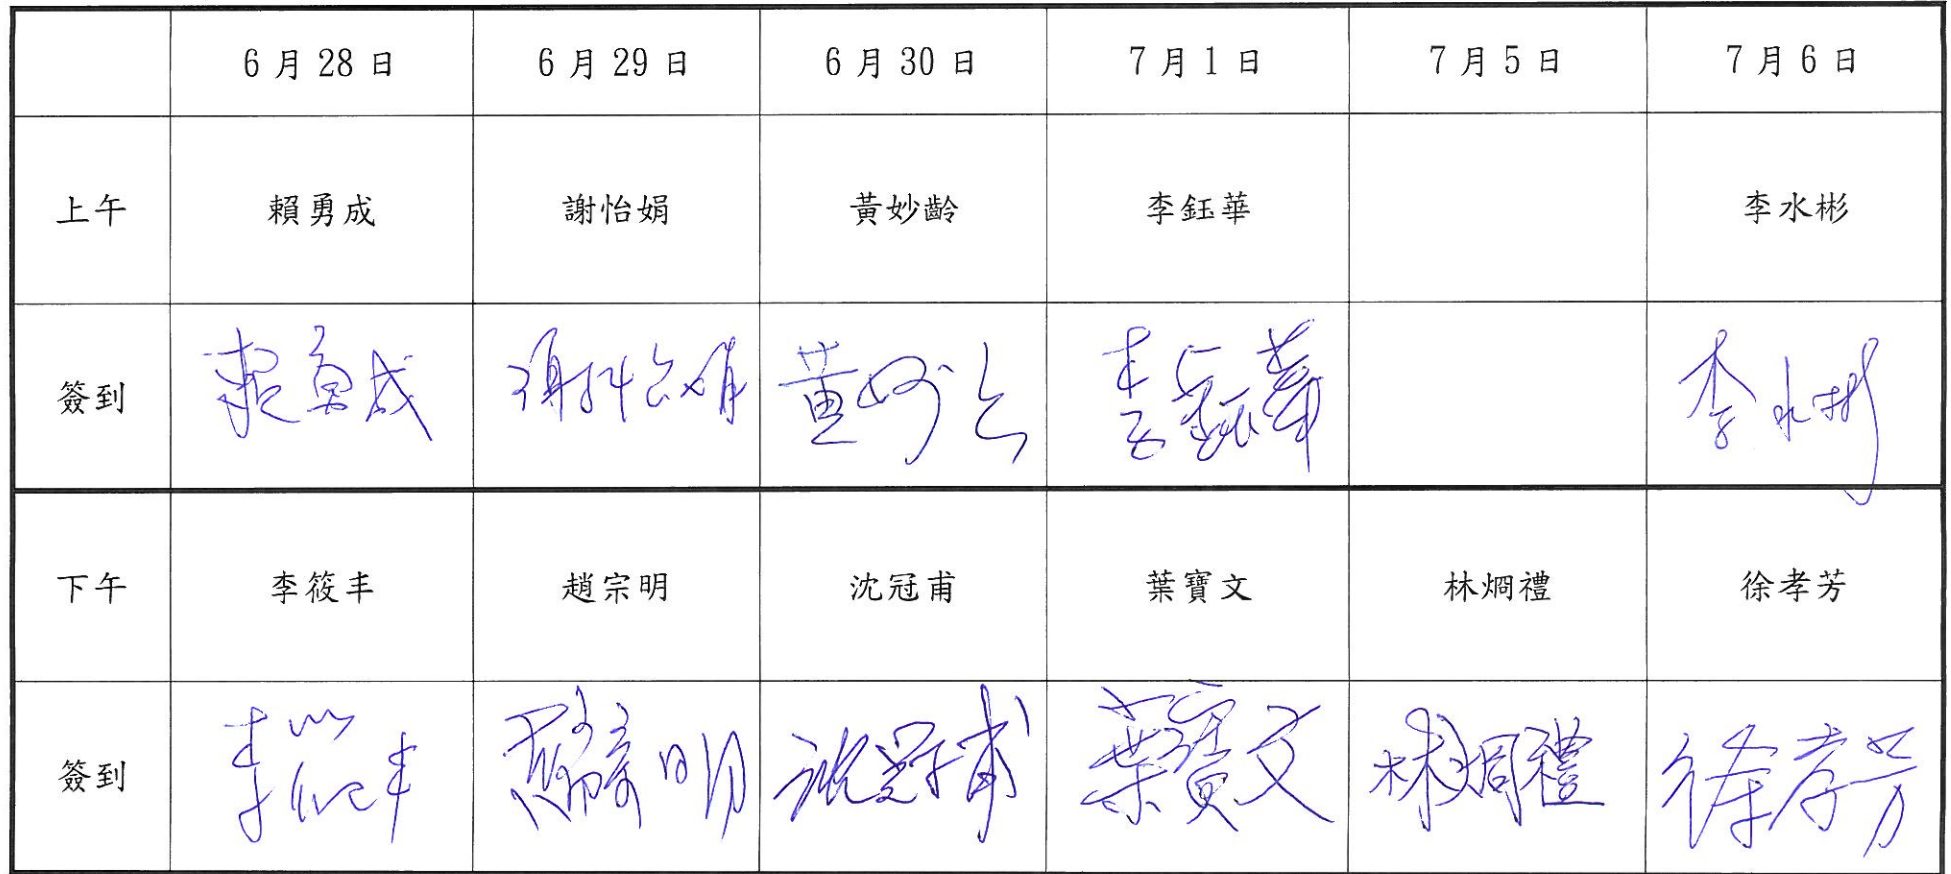 6月28日 6月29日 6月30日 7月1日 7月5日 7月6日
上午 賴勇成 謝怡娟 黃妙齡 李鈺華 李水彬
簽到 賴勇成 謝怡娟 黃妙令 李鈺華 李水彬
下午 李筱丰 趙宗明 沈冠甫 葉寶文 林烱禮 徐孝芳
簽到 李筱丰 趙宗明 沈冠甫 葉寶文 林烱禮 徐孝芳